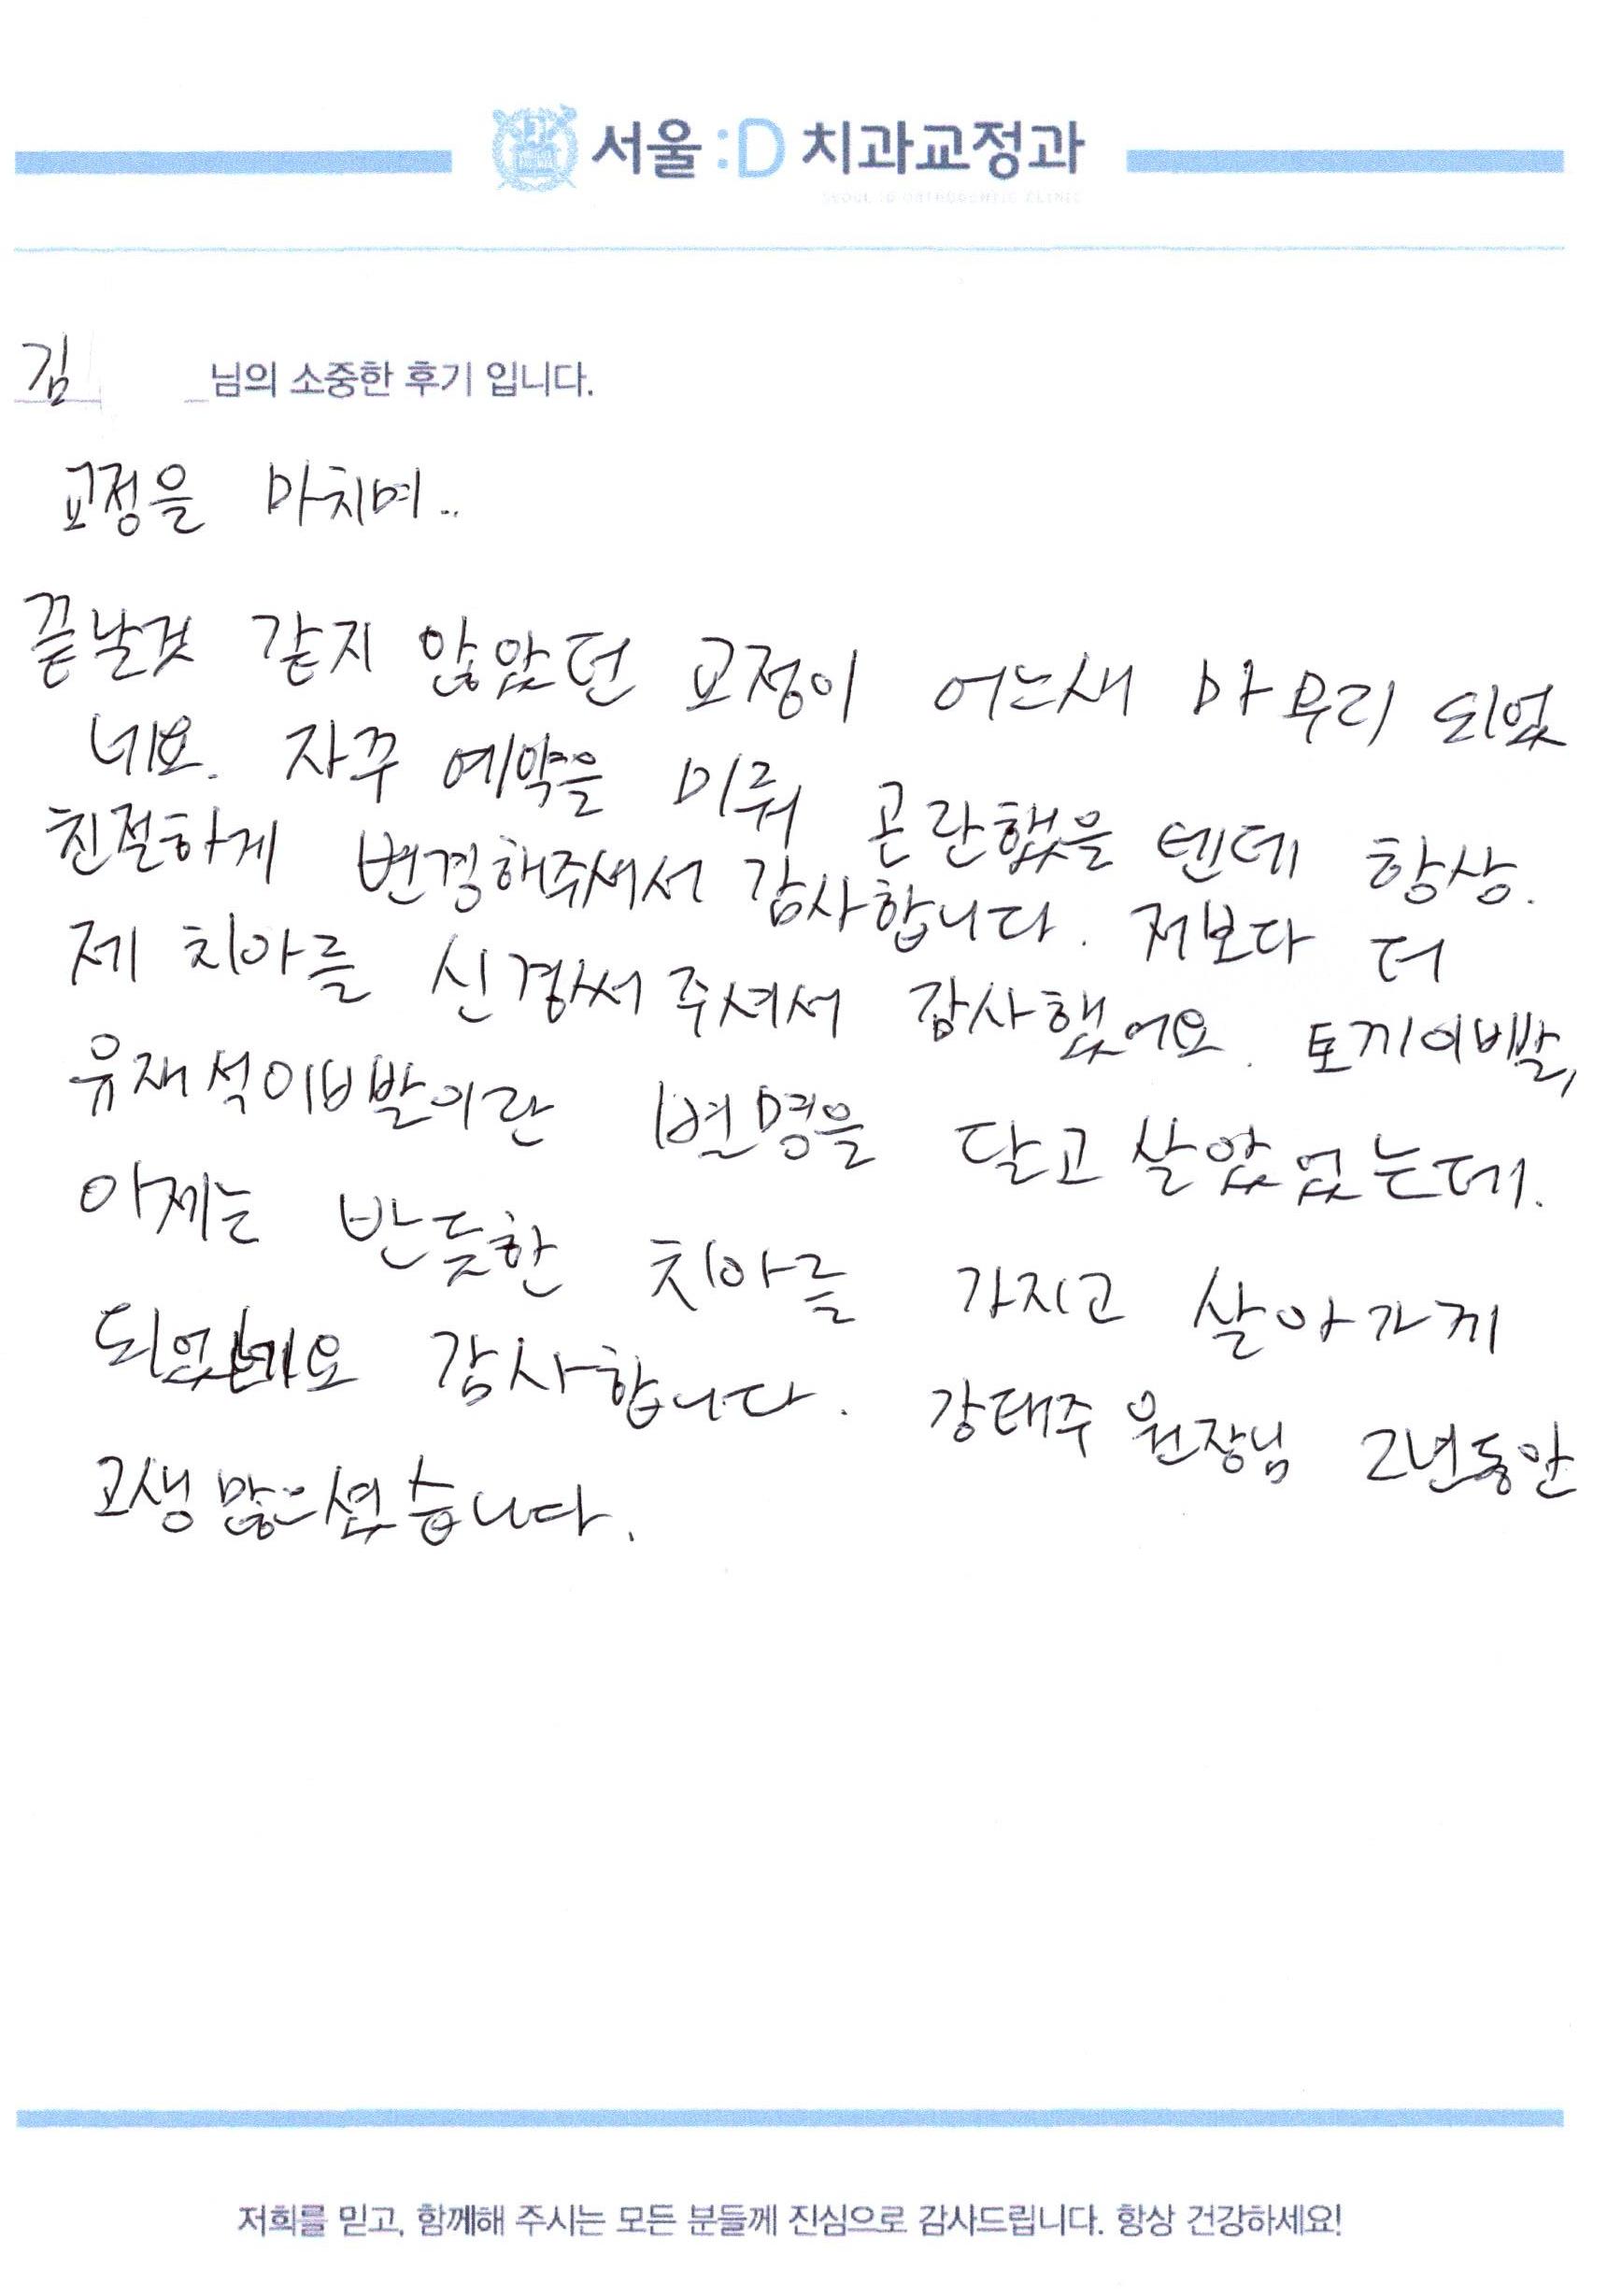 서울:D 치과교정과
SEOUL:D ORTHODONTIC CLINIC
김 님의 소중한 후기 입니다.
교정을 마치며..
끝날것 같지 않았던 교정이 어느새 마무리 되었
네요. 자꾸 예약을 미뤄 곤란했을 텐데 항상.
친절하게 변경해주셔서 감사합니다. 저보다 더
제 치아를 신경써 주셔서 감사했어요. 토끼이빨,
유재석이빨이란 별명을 달고 살았었는데.
이제는 반듯한 치아를 가지고 살아가게
되었네요 감사합니다. 강태주 원장님 2년동안
고생 많으셨습니다.
저희를 믿고, 함께해 주시는 모든 분들께 진심으로 감사드립니다. 항상 건강하세요!